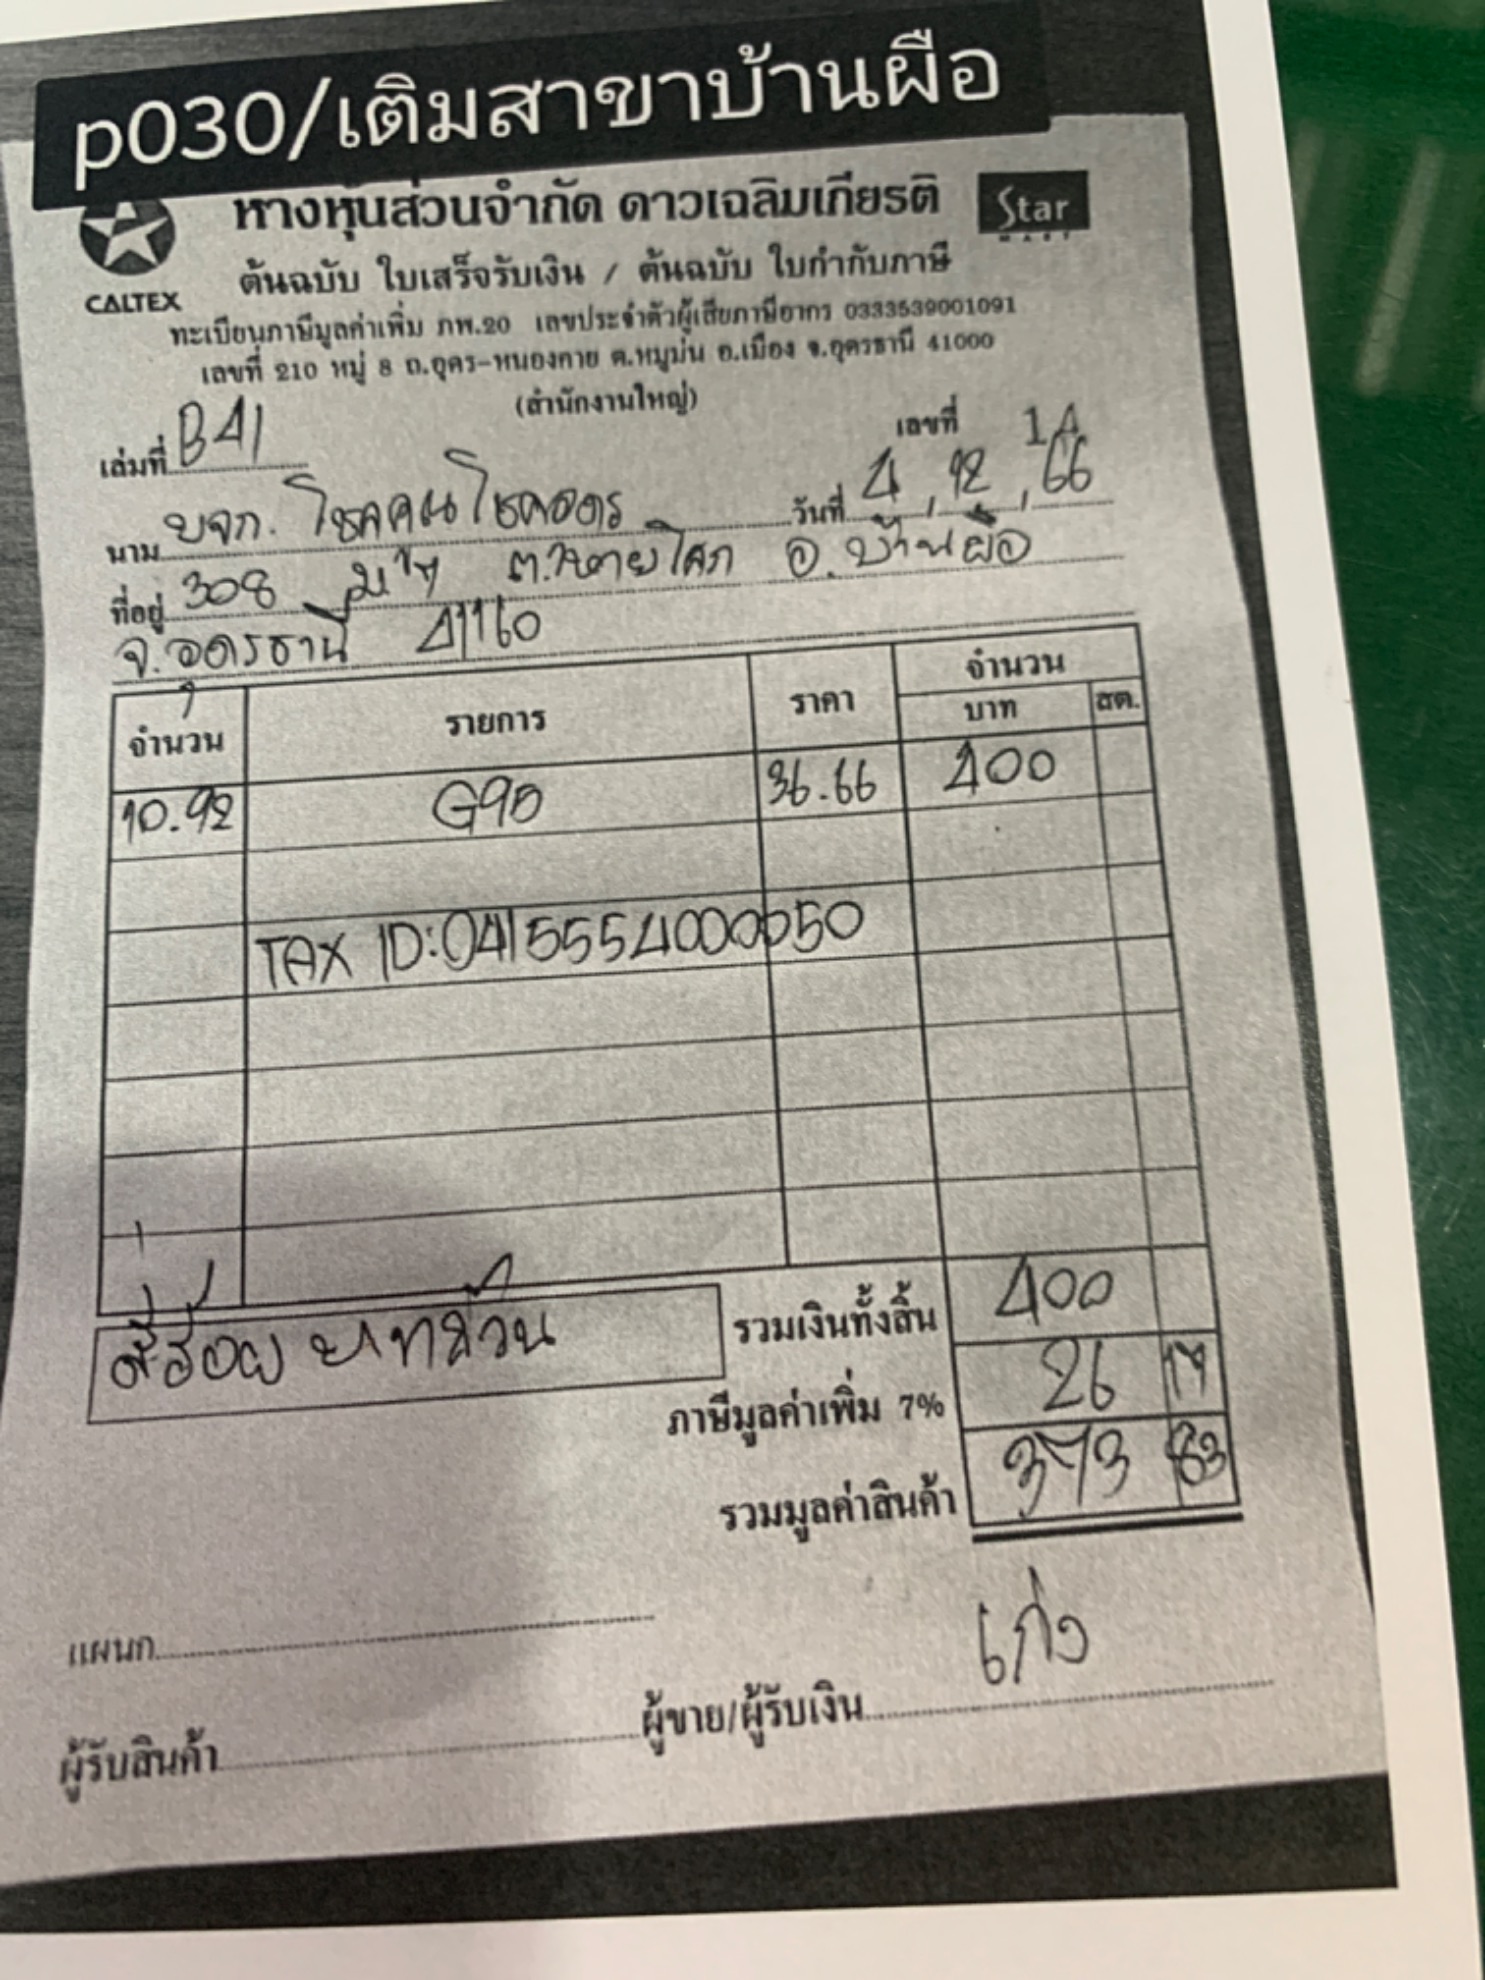 p030/เติมสาขาบ้านผือ
ห้างหุ้นส่วนจำกัด ดาวเฉลิมเกียรติ
Star
MART
CALTEX
ต้นฉบับ ใบเสร็จรับเงิน / ต้นฉบับ ใบกำกับภาษี
ทะเบียนภาษีมูลค่าเพิ่ม ภพ.20 เลขประจำตัวผู้เสียภาษีอากร 0333539001091
เลขที่ 210 หมู่ 8 ถ.อุดร-หนองคาย ต.หมูม่น อ.เมือง จ.อุดรธานี 41000
(สำนักงานใหญ่)
เล่มที่ B41 เลขที่ 14
นาม บจก. โชคคูนโชคอุดร วันที่ 4, 12, 66
ที่อยู่ 308 ม.7 ต.หายโศก อ.บ้านผือ
จ.อุดรธานี 41160
จำนวน รายการ ราคา จำนวน
บาท สต.
10.92 G95 36.66 400
TAX ID:0415554000050
สี่ร้อยบาทถ้วน รวมเงินทั้งสิ้น 400
ภาษีมูลค่าเพิ่ม 7% 26 17
รวมมูลค่าสินค้า 373 83
แผนก
ผู้รับสินค้า ผู้ขาย/ผู้รับเงิน เก่ง